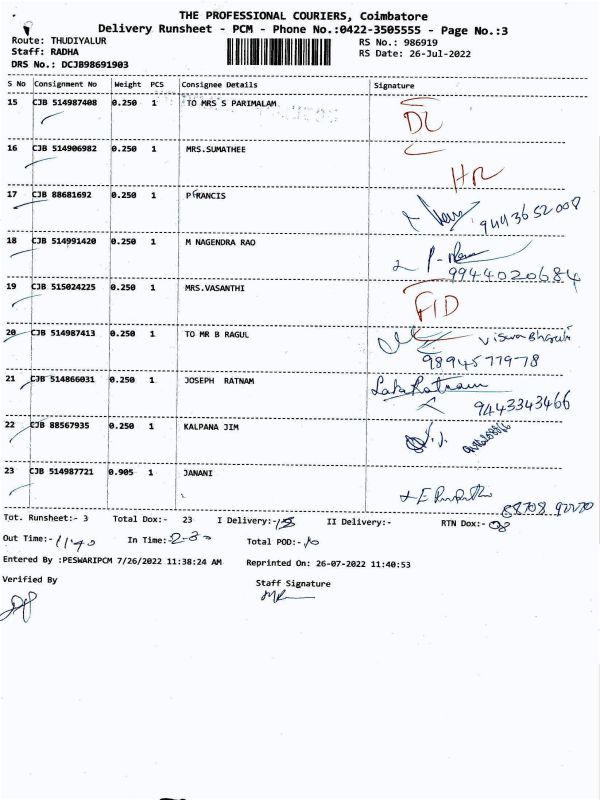 THE PROFESSIONAL COURIERS, Coimbatore
Delivery Runsheet - PCM - Phone No.:0422-3505555 - Page No.:3
Route: THUDIYALUR RS No.: 986919
Staff: RADHA RS Date: 26-Jul-2022
DRS No.: DCJB98691903
S No Consignment No Weight PCS Consignee Details Signature
15 CJB 514987408 0.250 1 TO MRS S PARIMALAM
DL
16 CJB 514906982 0.250 1 MRS.SUMATHEE
HR
17 CJB 88681692 0.250 1 P FRANCIS
9443652008
18 CJB 514991420 0.250 1 M NAGENDRA RAO
9944020684
19 CJB 515024225 0.250 1 MRS.VASANTHI
FID
20 CJB 514987413 0.250 1 TO MR B RAGUL
9894577978
21 CJB 514866031 0.250 1 JOSEPH RATNAM
Ratnam
9443343466
22 CJB 88567935 0.250 1 KALPANA JIM
23 CJB 514987721 0.905 1 JANANI
Tot. Runsheet:- 3 Total Dox:- 23 I Delivery:- II Delivery:- RTN Dox:- 08
Out Time:- 11:40 In Time:- 2-30 Total POD:- 10
Entered By :PESWARIPCM 7/26/2022 11:38:24 AM Reprinted On: 26-07-2022 11:40:53
Verified By Staff Signature